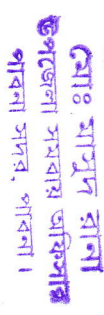 মোঃ মাসুদ রানা
উপজেলা সমবায় অফিসার
পাবনা সদর, পাবনা।